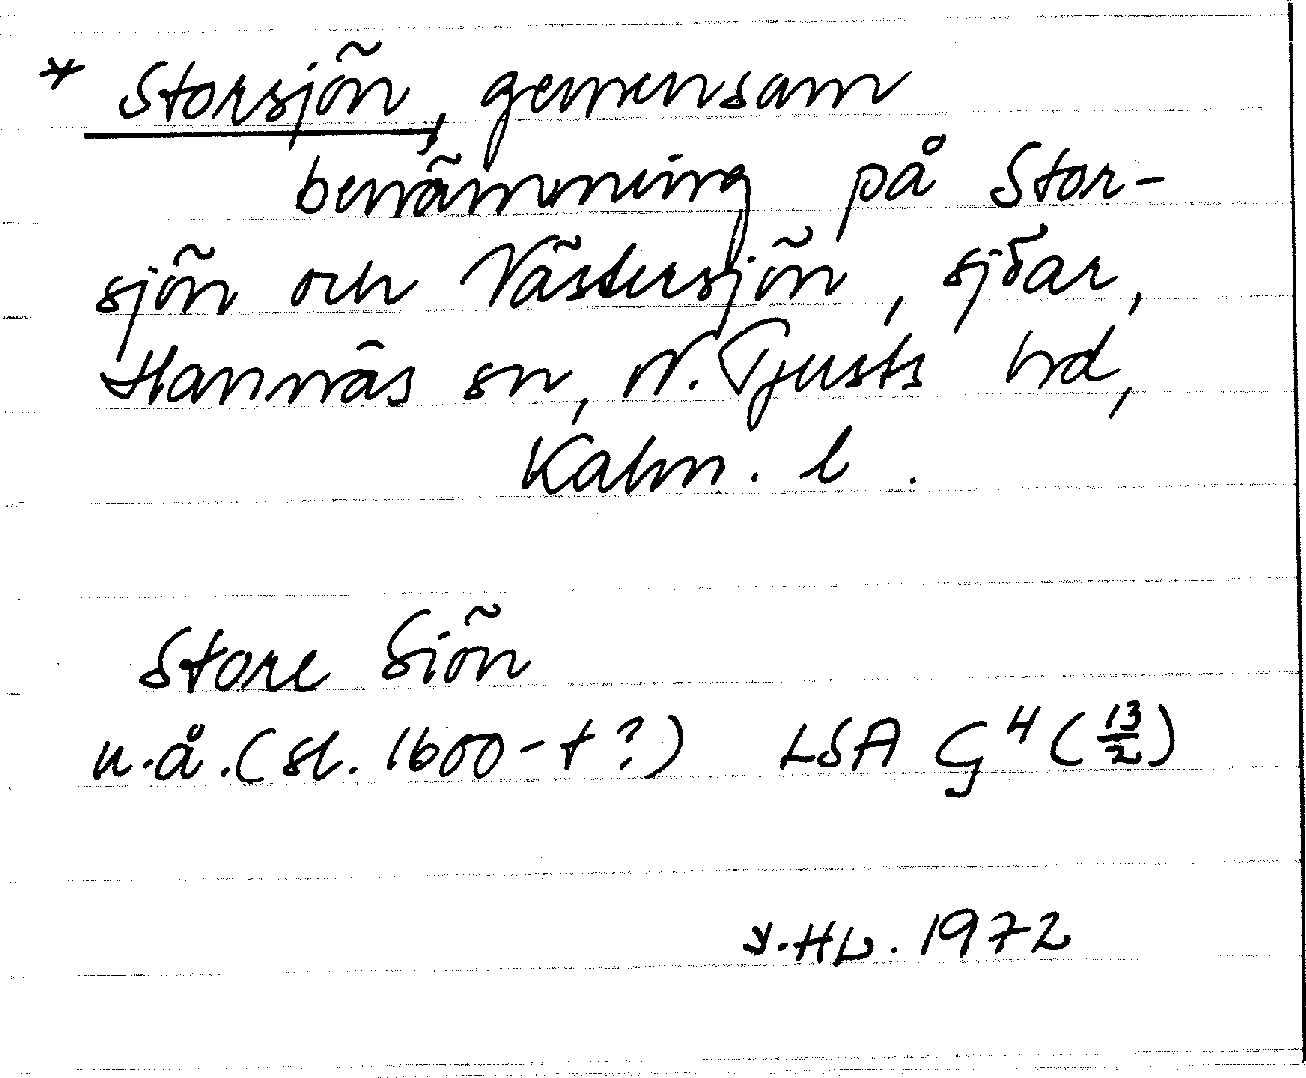 * Storsjön, gemensam
benämning på Stor-
sjön och Västersjön, sjöar,
Hannäs sn, N. Tjusts hd,
Kalm. l.
Store Siön
u.å. (sl. 1600-t?) LSA G4 (13/2)
HL. 1972